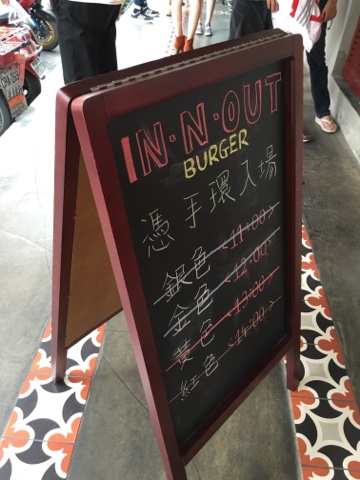 IN·N·OUT
BURGER
憑手環入場
銀色 <11:00>
金色 <12:00>
黃色 <13:00>
紅色 <14:00>